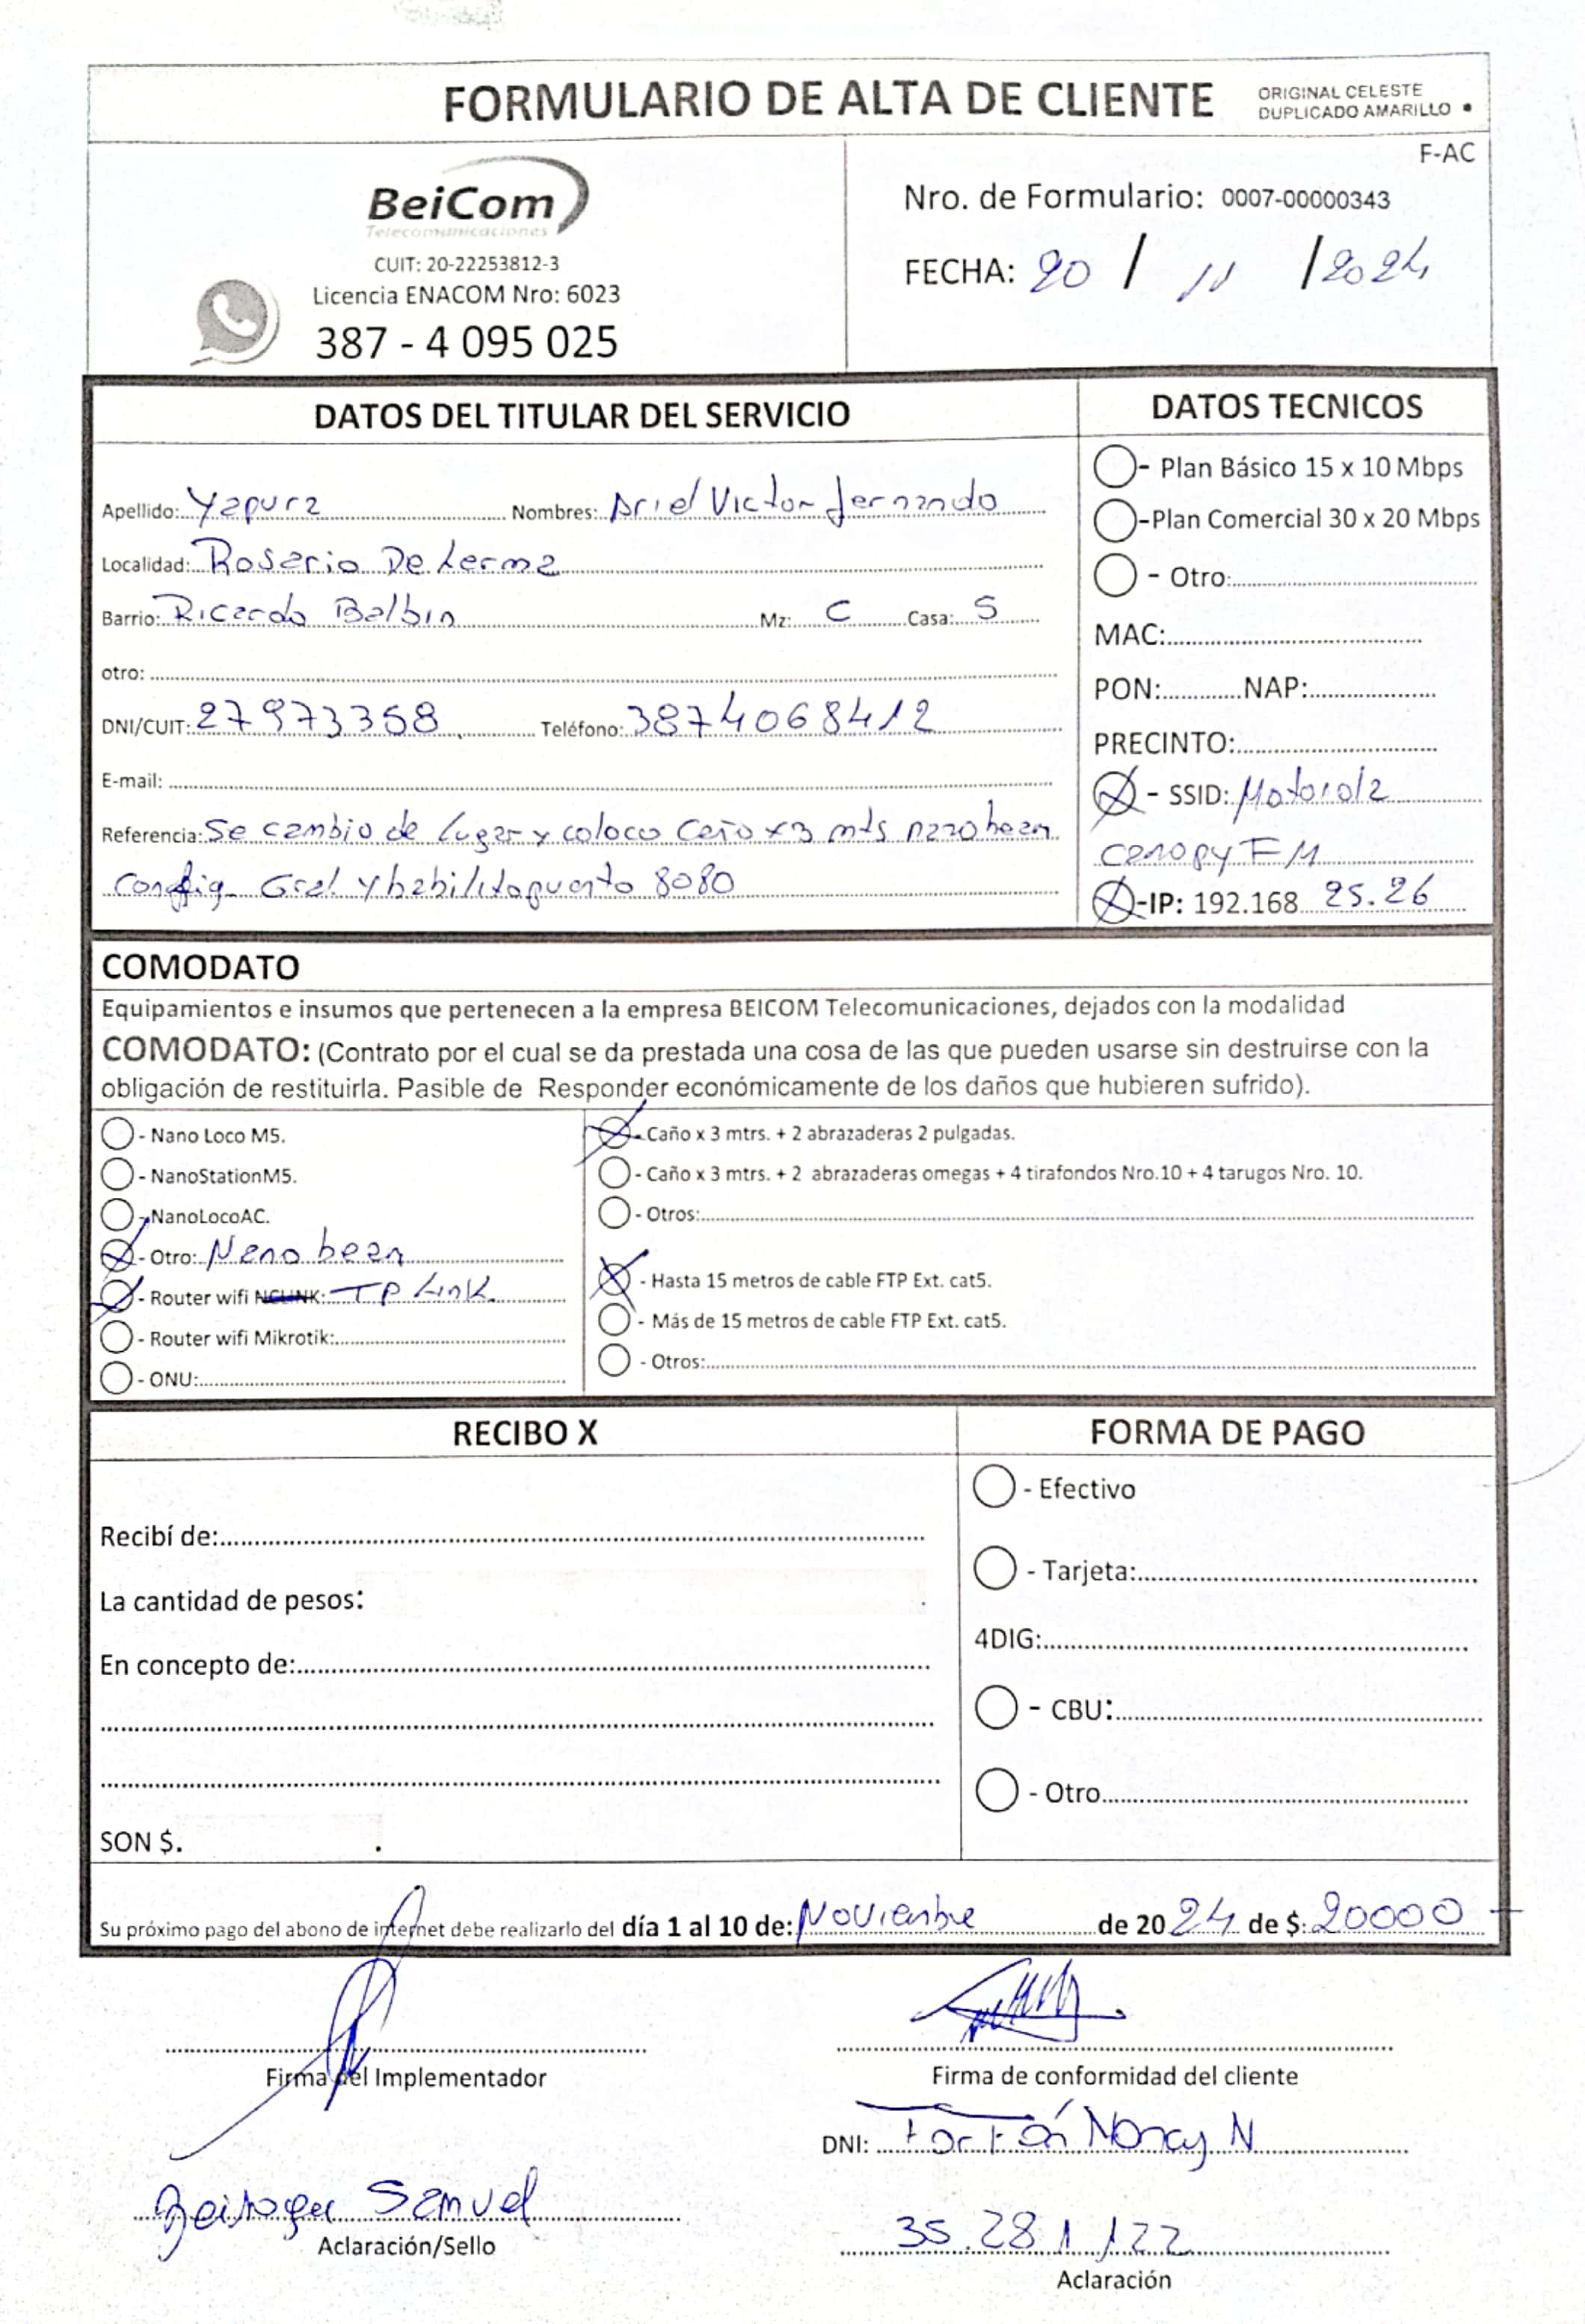 FORMULARIO DE ALTA DE CLIENTE
ORIGINAL CELESTE
DUPLICADO AMARILLO •
F-AC
BeiCom
Telecomunicaciones
CUIT: 20-22253812-3
Licencia ENACOM Nro: 6023
387 - 4 095 025
Nro. de Formulario: 0007-00000343
FECHA: 20 / 11 / 2024
DATOS DEL TITULAR DEL SERVICIO
Apellido: Yapura Nombres: Ariel Victor fernando
Localidad: Rosario De Lerma
Barrio: Ricardo Balbin Mz: C Casa: 5
otro:
DNI/CUIT: 27973358 Teléfono: 3874068412
E-mail:
Referencia: Se cambio de lugar y coloco Caño x3 mts nanobean
Config Gral y habilito puerto 8080
DATOS TECNICOS
- Plan Básico 15 x 10 Mbps
-Plan Comercial 30 x 20 Mbps
- Otro:
MAC:
PON: NAP:
PRECINTO:
- SSID: Motorola
canopy FM
-IP: 192.168 25.26
COMODATO
Equipamientos e insumos que pertenecen a la empresa BEICOM Telecomunicaciones, dejados con la modalidad
COMODATO: (Contrato por el cual se da prestada una cosa de las que pueden usarse sin destruirse con la
obligación de restituirla. Pasible de Responder económicamente de los daños que hubieren sufrido).
- Nano Loco M5.
- NanoStationM5.
- NanoLocoAC.
- Otro: Nanobean
- Router wifi TP Link
- Router wifi Mikrotik:
- ONU:
- Caño x 3 mtrs. + 2 abrazaderas 2 pulgadas.
- Caño x 3 mtrs. + 2 abrazaderas omegas + 4 tirafondos Nro.10 + 4 tarugos Nro. 10.
- Otros:
- Hasta 15 metros de cable FTP Ext. cat5.
- Más de 15 metros de cable FTP Ext. cat5.
- Otros:
RECIBO X
Recibí de:
La cantidad de pesos:
En concepto de:
SON $.
FORMA DE PAGO
- Efectivo
- Tarjeta:
4DIG:
- CBU:
- Otro
Su próximo pago del abono de internet debe realizarlo del día 1 al 10 de: Noviembre de 20 24 de $: 20000
Firma del Implementador
Firma de conformidad del cliente
DNI: Farfán Nancy N
Samuel
Aclaración/Sello
35.281.122
Aclaración